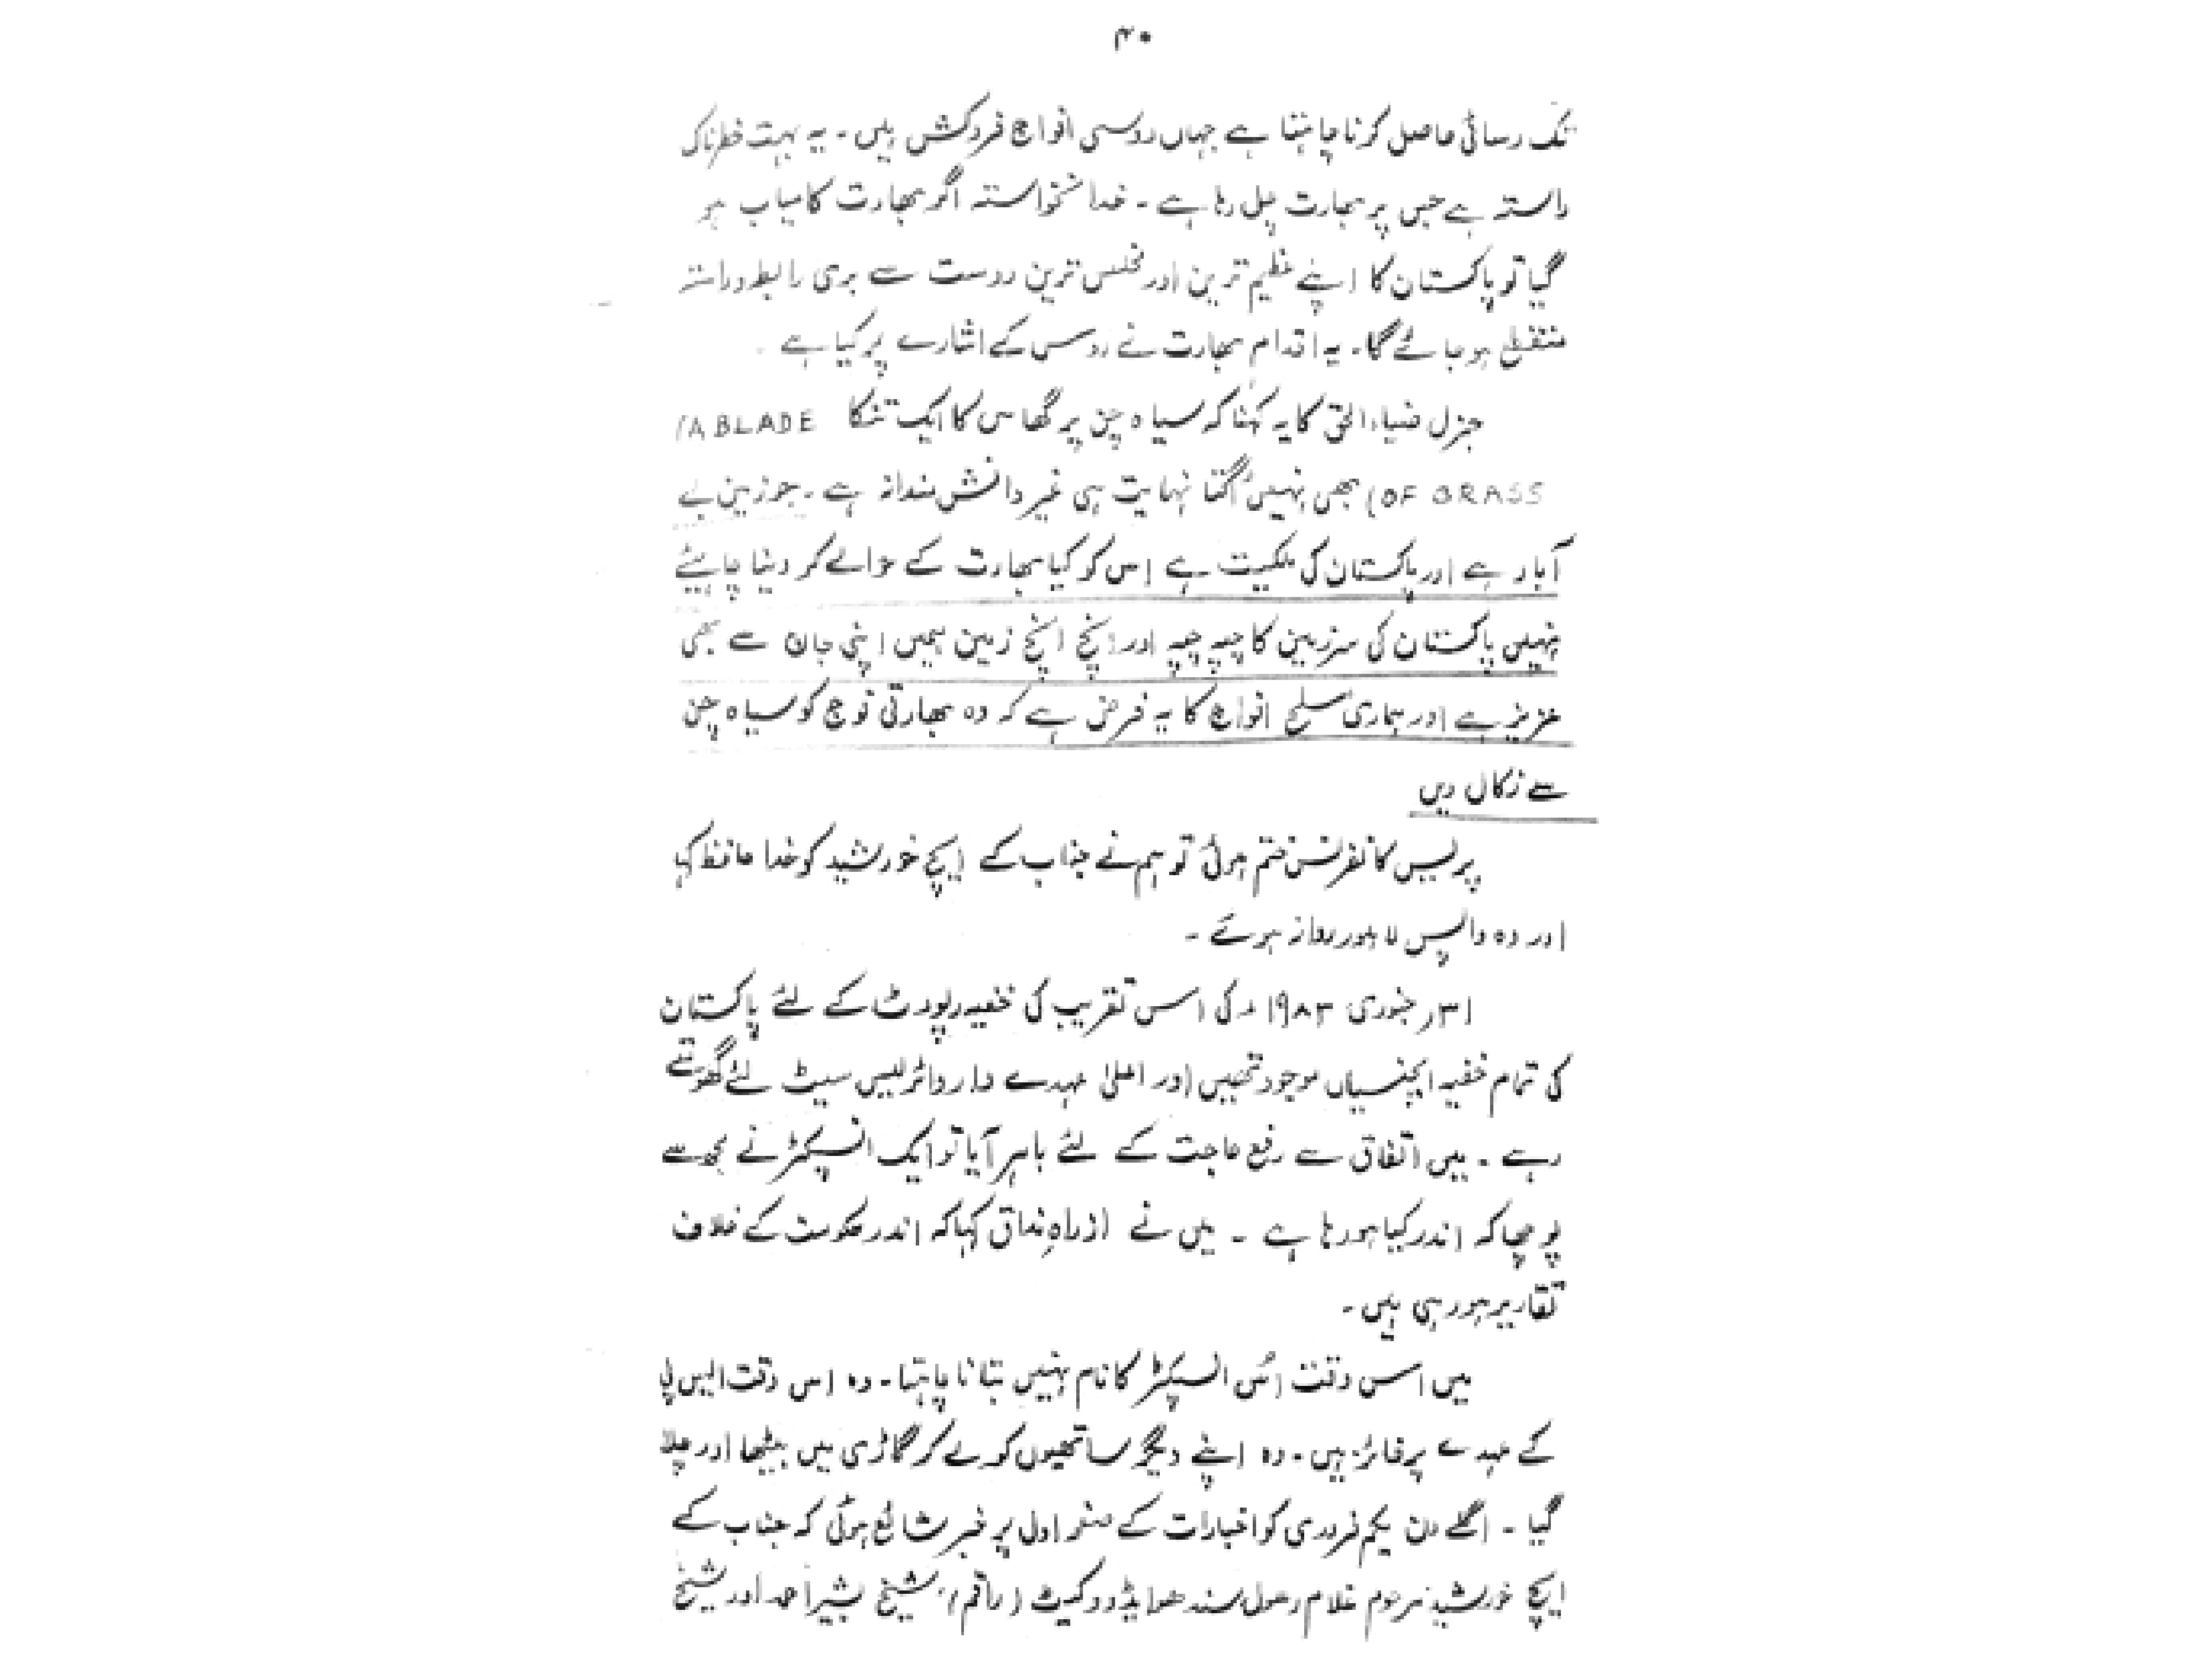 ۴۰
تک رسائی حاصل کرنا چاہتا ہے جہاں روسی افواج فروکش ہیں ۔ یہ بہت خطرناک
راستہ ہے جس پر بھارت چل رہا ہے ۔ خدانخواستہ اگر بھارت کامیاب ہو
گیا تو پاکستان کا اپنے عظیم ترین اور مخلص ترین دوست سے بری رابطہ و راستہ
منقطع ہو جائے گا ۔ یہ اقدام بھارت نے روس کے اشارے پر کیا ہے ۔
جنرل ضیاء الحق کا یہ کہنا کہ سیاہ چن پر گھاس کا ایک تنکا (A BLADE
OF GRASS) بھی نہیں اُگتا نہایت ہی غیر دانش مندانہ ہے ۔ جو زمین بے
آباد ہے اور پاکستان کی ملکیت ہے اس کو کیا بھارت کے حوالے کر دینا چاہیئے
نہیں پاکستان کی سرزمین کا چپہ چپہ اور انچ انچ زمین ہمیں اپنی جان سے بھی
عزیز ہے اور ہماری مسلح افواج کا یہ فرض ہے کہ وہ بھارتی فوج کو سیاہ چن
سے نکال دیں
پریس کانفرنس ختم ہوئی تو ہم نے جناب کے ایچ خورشید کو خدا حافظ کہا
اور وہ واپس لاہور روانہ ہوئے ۔
۳۱ر جنوری ۱۹۸۳ء کی اس تقریب کی خفیہ رپورٹ کے لئے پاکستان
کی تمام خفیہ ایجنسیاں موجود تھیں اور اعلیٰ عہدے دار وائرلیس سیٹ لئے گھومتے
رہے ۔ میں اتفاق سے رفع حاجت کے لئے باہر آیا تو ایک انسپکٹر نے مجھ سے
پوچھا کہ اندر کیا ہو رہا ہے ۔ میں نے ازراہِ مذاق کہا کہ اندر حکومت کے خلاف
تقاریر ہو رہی ہیں ۔
میں اس وقت اُس انسپکٹر کا نام نہیں بتانا چاہتا ۔ وہ اس وقت ایس پی
کے عہدے پر فائز ہیں ۔ وہ اپنے دیگر ساتھیوں کو لے کر گاڑی میں بیٹھا اور چلا
گیا ۔ اگلے دن یکم فروری کو اخبارات کے صفحہ اول پر خبر شائع ہوئی کہ جناب کے
ایچ خورشید مرحوم غلام رسول سندھو ایڈووکیٹ (راقم) ، شیخ بشیر احمد اور شیخ